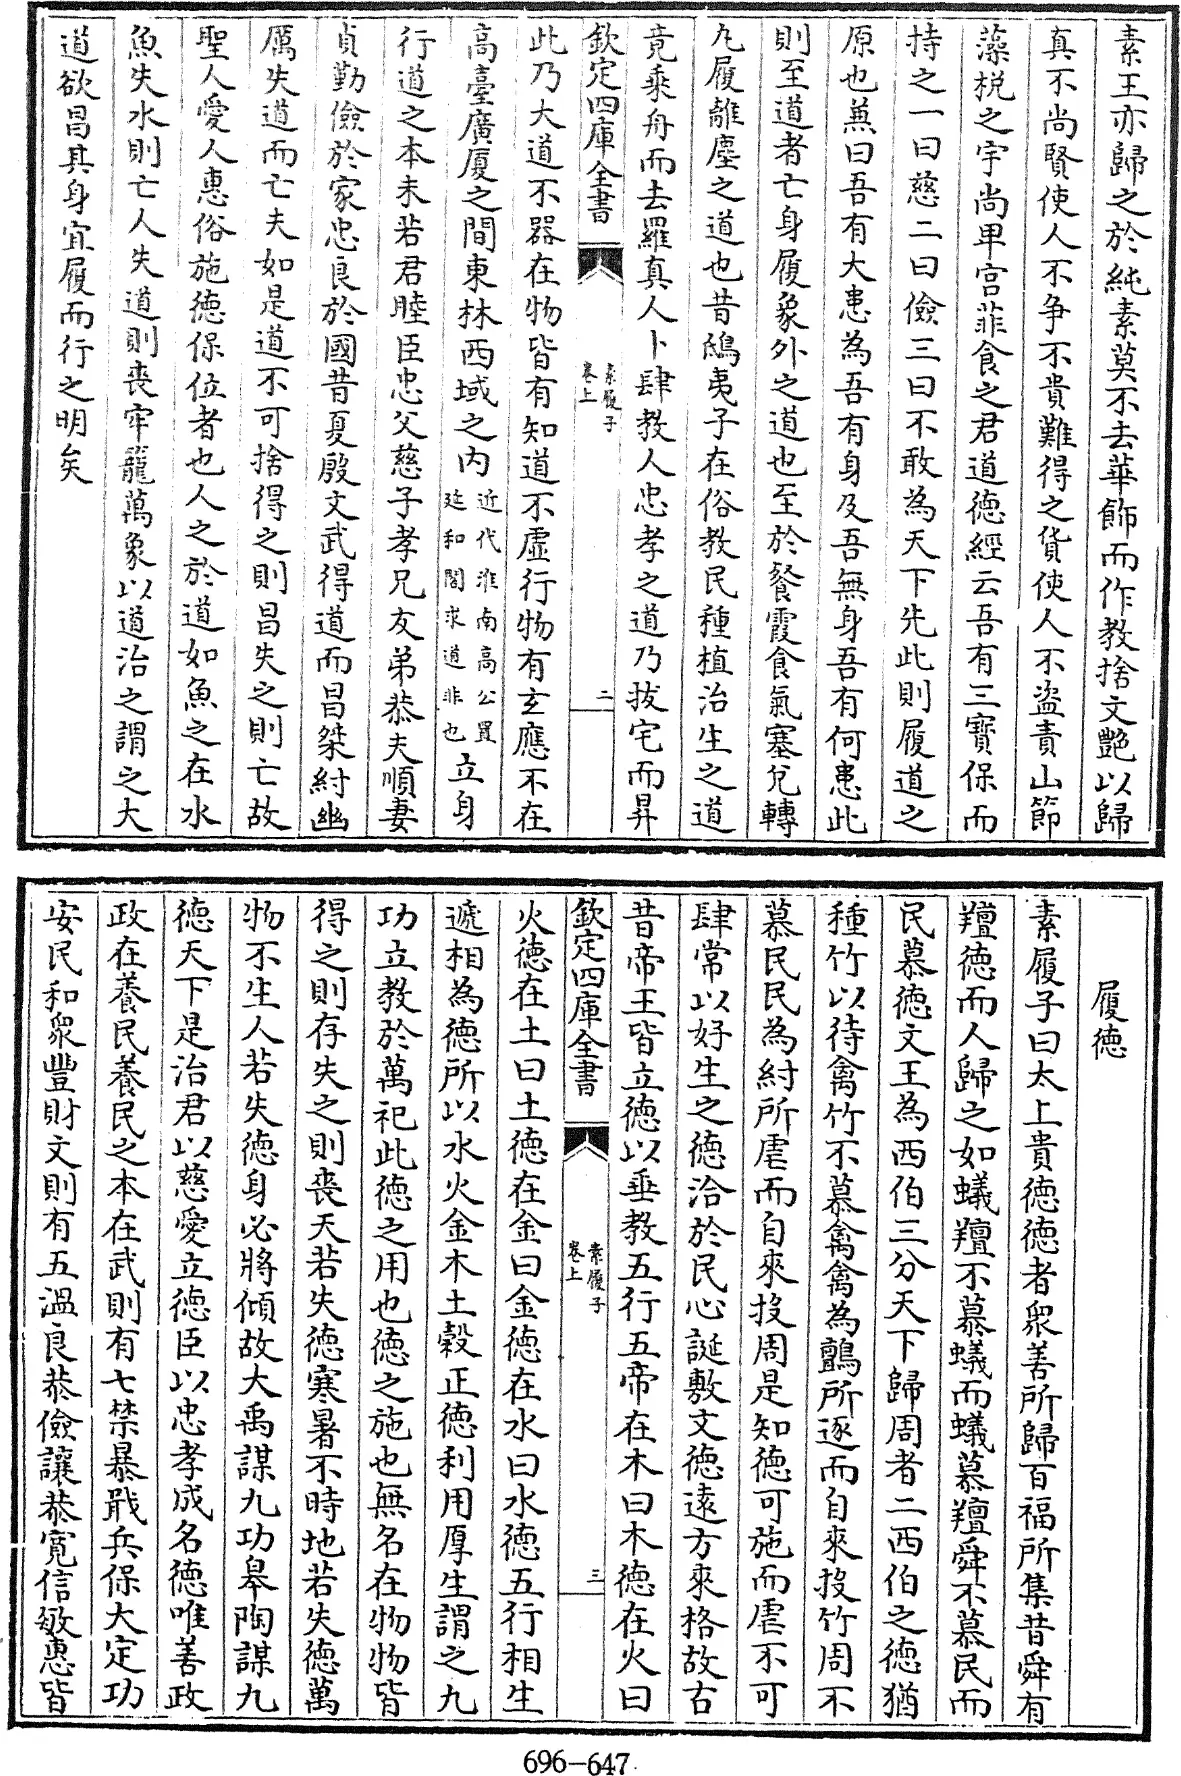 素王亦歸之於純素莫不去華飾而作教捨文艷以歸
真不尚賢使人不争不貴難得之貨使人不盜責山節
藻梲之宇尚卑宫菲食之君道德經云吾有三寳保而
持之一曰慈二曰儉三曰不敢為天下先此則履道之
原也兼曰吾有大患為吾有身及吾無身吾有何患此
則至道者亡身履象外之道也至於餐霞食氣塞兌轉
九履離塵之道也昔鴟夷子在俗教民種植治生之道
竟乘舟而去羅真人卜肆教人忠孝之道乃拔宅而昇
欽定四庫全書
素履子
卷上
二
此乃大道不器在物皆有知道不虛行物有玄應不在
高臺廣厦之間東林西域之内近代淮南高公置延和閣求道非也立身
行道之本未若君睦臣忠父慈子孝兄友弟恭夫順妻
貞勤儉於家忠良於國昔夏殷文武得道而昌桀紂幽
厲失道而亡夫如是道不可捨得之則昌失之則亡故
聖人愛人惠俗施德保位者也人之於道如魚之在水
魚失水則亡人失道則喪牢籠萬象以道治之謂之大
道欲昌其身宜履而行之明矣
履德
素履子曰太上貴德德者衆善所歸百福所集昔舜有
羶德而人歸之如蟻羶不慕蟻而蟻慕羶舜不慕民而
民慕德文王為西伯三分天下歸周者二西伯之德猶
種竹以待禽竹不慕禽禽為鸇所逐而自來投竹周不
慕民民為紂所虐而自來投周是知德可施而虐不可
肆常以好生之德洽於民心誕敷文德遠方來格故古
昔帝王皆立德以垂教五行五帝在木曰木德在火曰
欽定四庫全書
素履子
卷上
三
火德在土曰土德在金曰金德在水曰水德五行相生
遞相為德所以水火金木土穀正德利用厚生謂之九
功立教於萬祀此德之用也德之施也無名在物物皆
得之則存失之則喪天若失德寒暑不時地若失德萬
物不生人若失德身必將傾故大禹謀九功皋陶謀九
德天下是治君以慈愛立德臣以忠孝成名德唯善政
政在養民養民之本在武則有七禁暴戢兵保大定功
安民和衆豐財文則有五溫良恭儉讓恭寛信敏惠皆
696-647